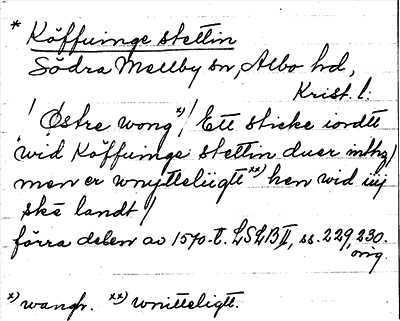 * Köffuinge slettin
Södra Mellby sn, Albo hd,
Krist. l.
/ Østre wong x)/ Ett sticke iordtt
wid Köffuinge slettin duer inthz/
men er wnytteliigtt xx) hen wid iiij
ske landt /
förra delen av 1570-t. LSLB II, ss. 229, 230.
orig.
x) wangh. xx) wnitteligtt.